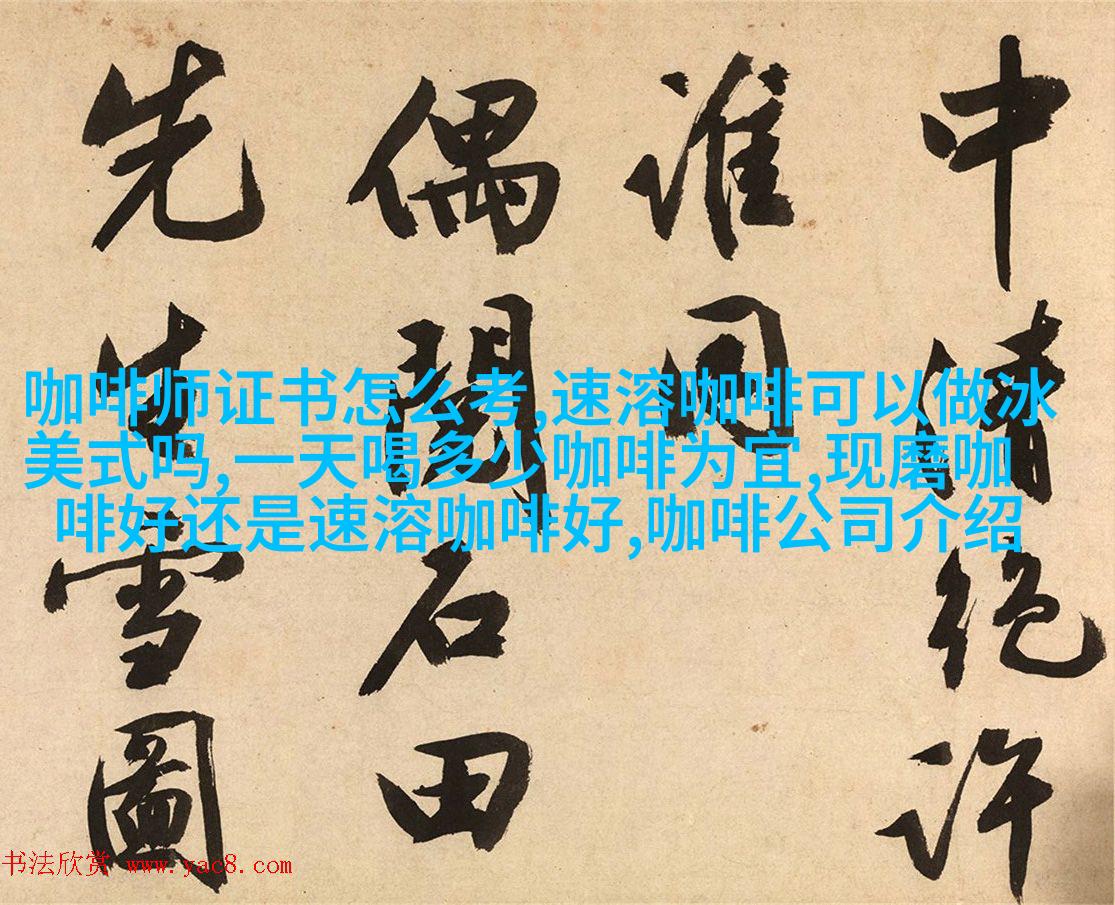 中清絕許
誰同
偶閱石田
先生雪圖
咖啡师证书怎么考,速溶咖啡可以做冰
美式吗,一天喝多少咖啡为宜,现磨咖
啡好还是速溶咖啡好,咖啡公司介绍
书法欣赏 www.yac8.com